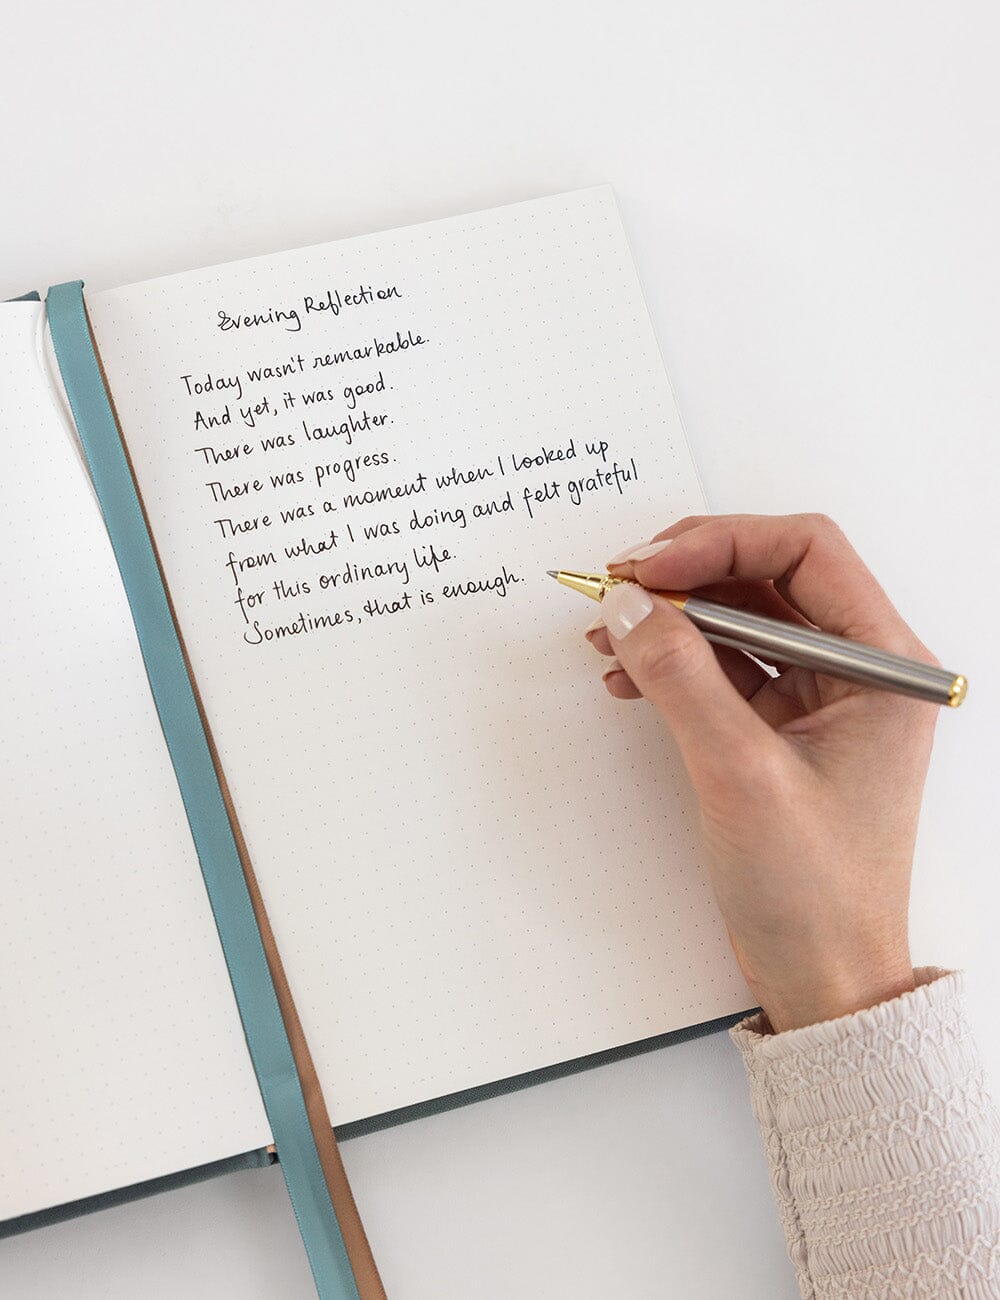 Evening Reflection
Today wasn't remarkable.
And yet, it was good.
There was laughter.
There was progress.
There was a moment when I looked up
from what I was doing and felt grateful
for this ordinary life.
Sometimes, that is enough.